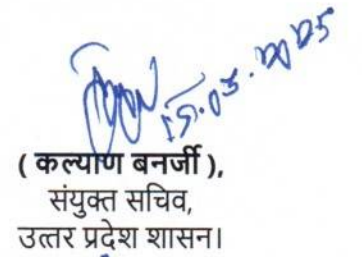 15.03.2025
( कल्याण बनर्जी ),
संयुक्त सचिव,
उत्तर प्रदेश शासन।